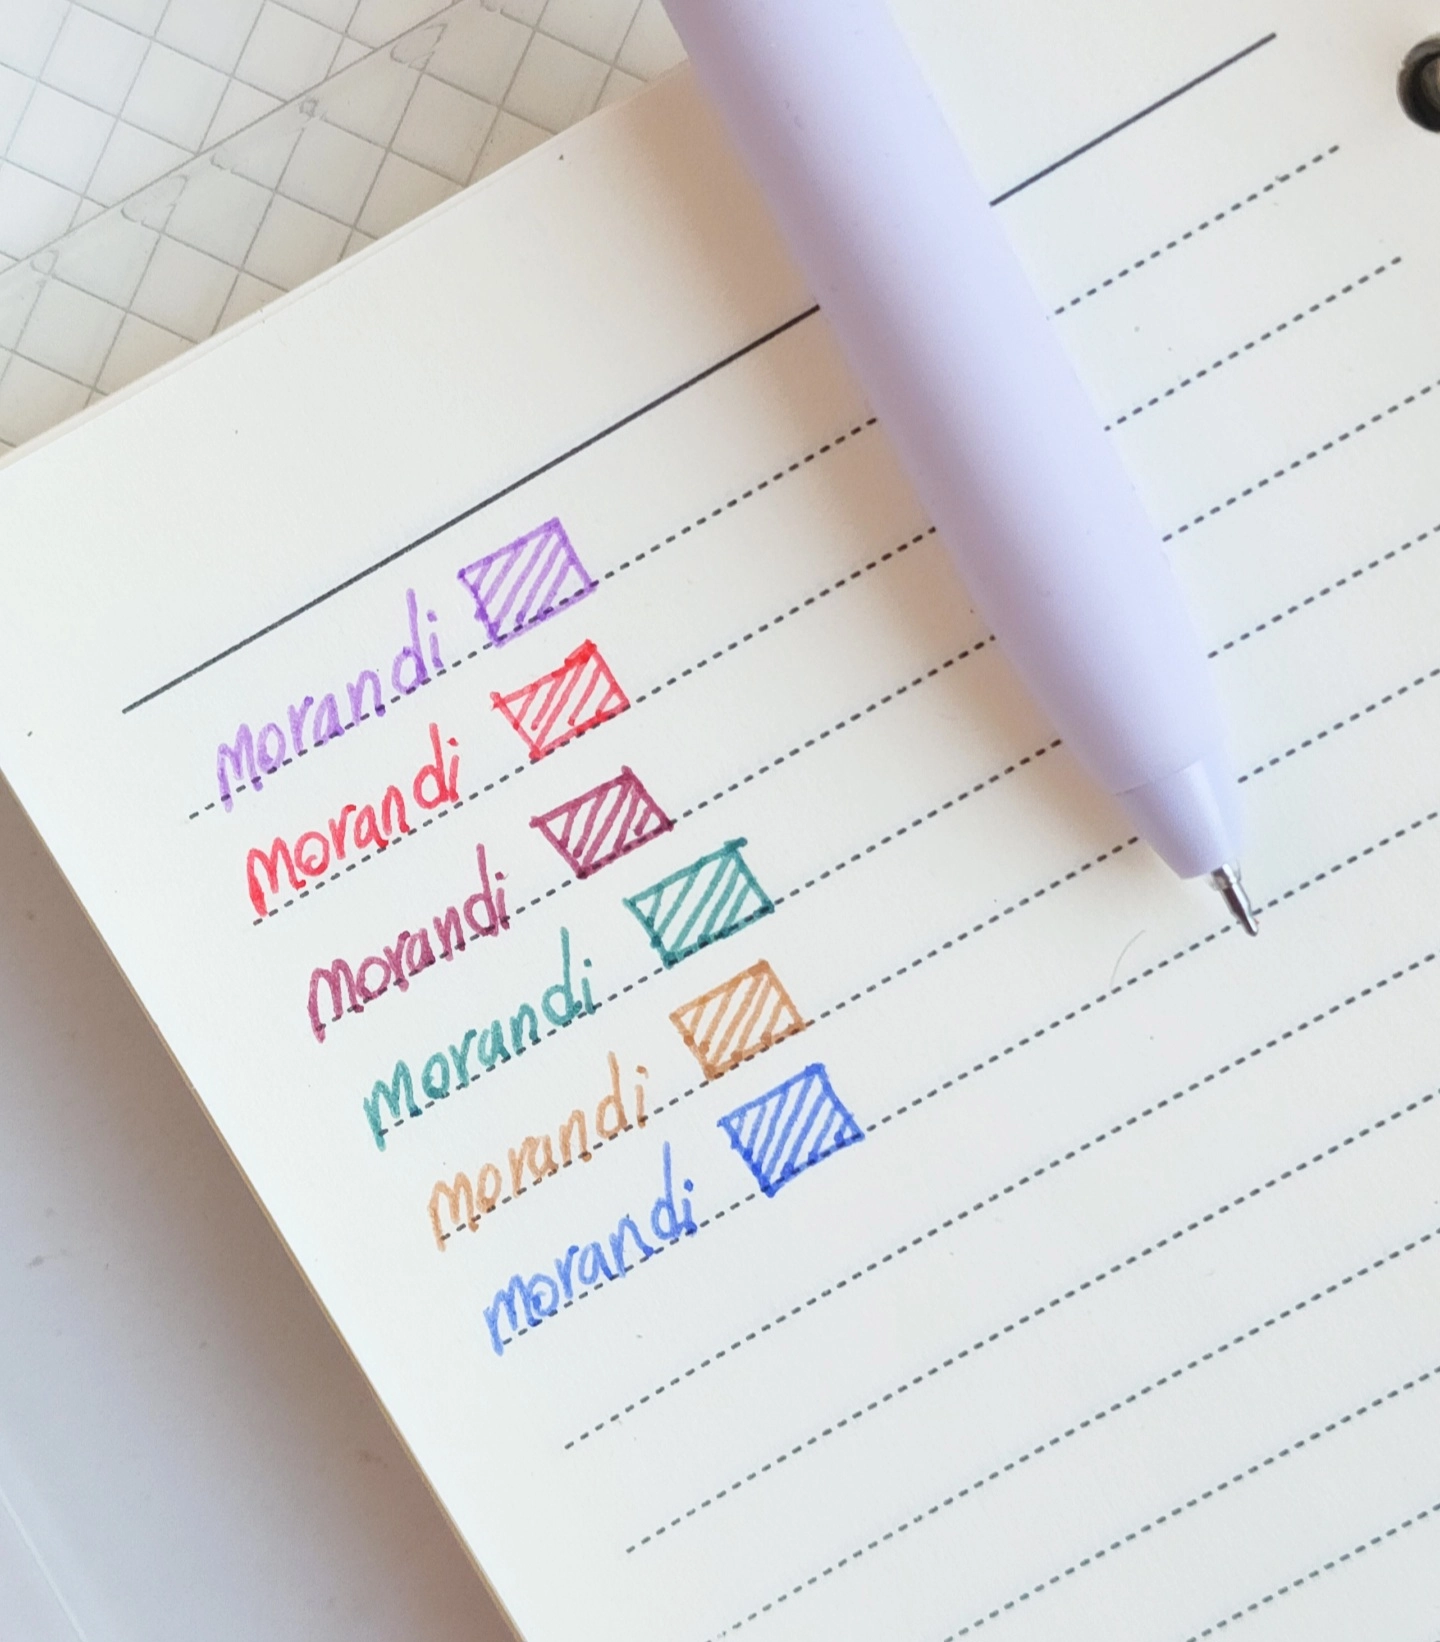 morandi
morandi
morandi
morandi
morandi
morandi